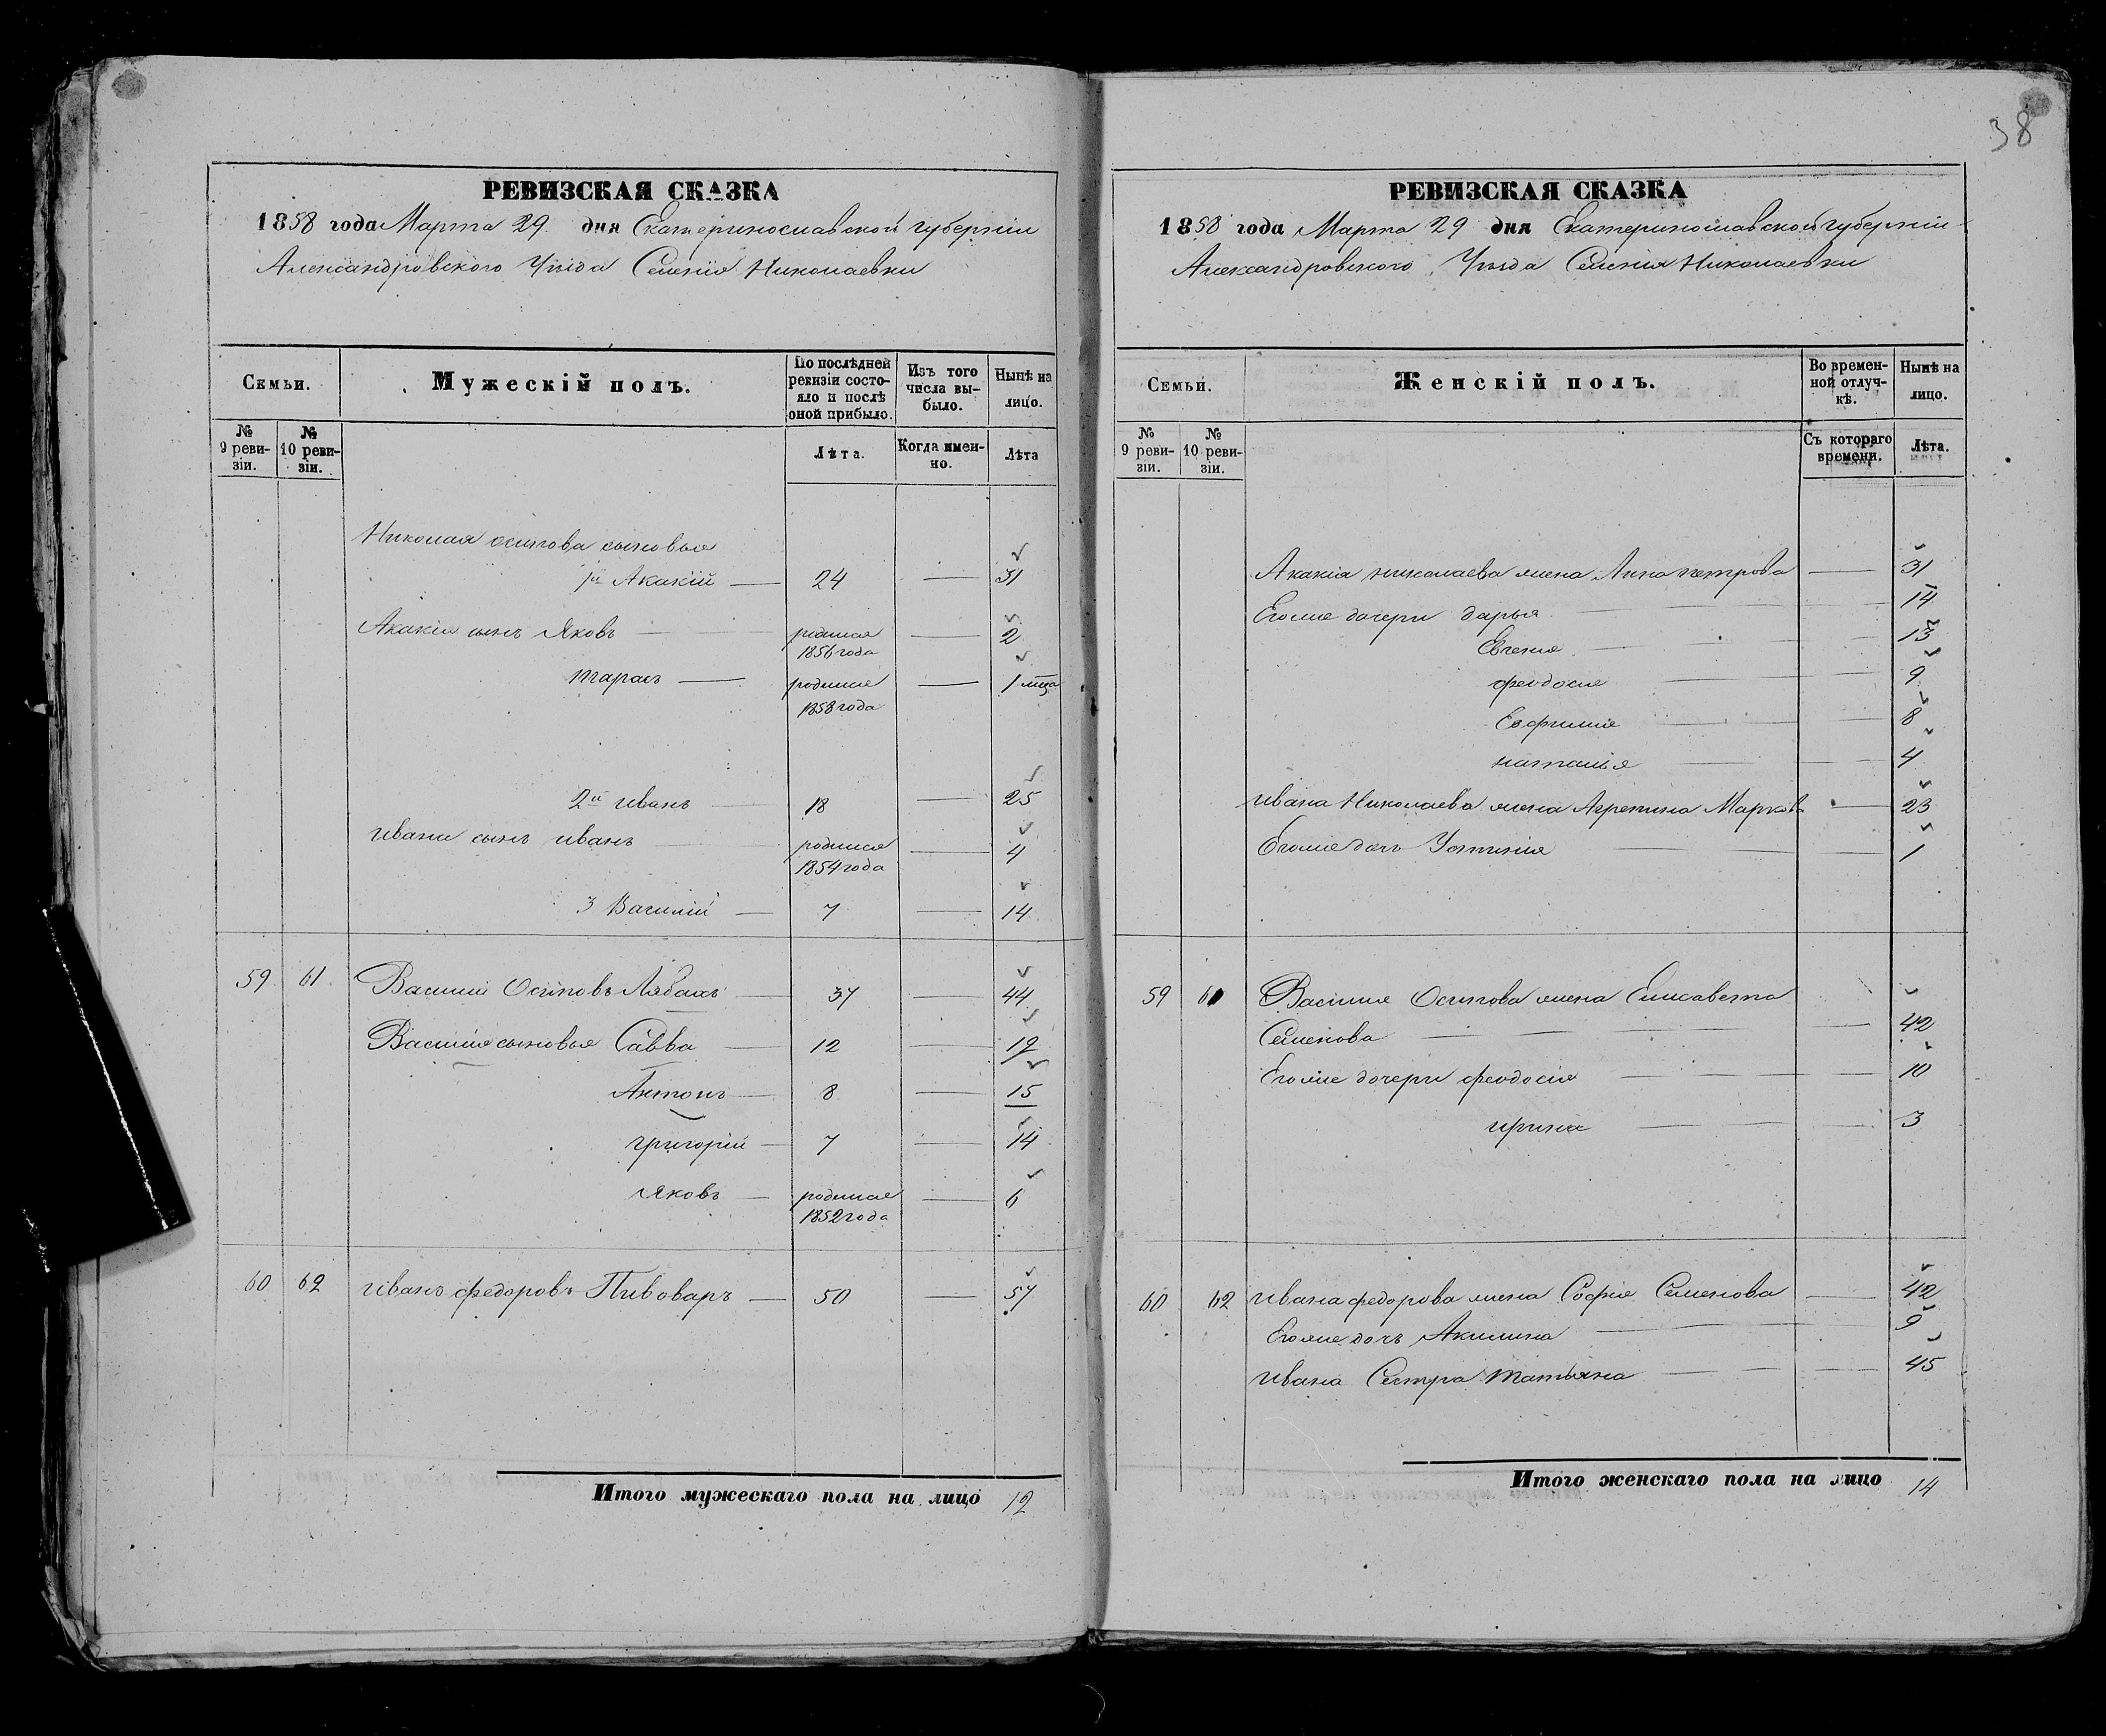 38
РЕВИЗСКАЯ СКАЗКА
1858 года Марта 29 дня Екатеринославской губерніи
Александровского Уѣзда Селенія Николаевки
Семьи.
Мужескій полъ.
По послѣдней ревизіи состояло и послѣ оной прибыло.
Изъ того числа выбыло.
Нынѣ на лицо.
№ 9 ревизіи.
№ 10 ревизіи.
Лѣта.
Когда именно.
Лѣта
Николая осипова сыновья
1й Акакій 24 31
Акакія сынъ Яковъ родился 1856 года 2
тарасъ родился 1858 года 1 мца
2й иванъ 18 25
ивана сынъ иванъ родился 1854 года 4
3 Василій 7 14
59 61 Василій Осиповъ Лябахъ 37 44
Василія сыновья Савва 12 19
Антонъ 8 15
григорій 7 14
яковъ родился 1852 года 6
60 62 иванъ федоровъ Пивоваръ 50 57
Итого мужескаго пола на лицо 12
РЕВИЗСКАЯ СКАЗКА
1858 года Марта 29 дня Екатеринославской губерніи
Александровского Уѣзда Селенія Николаевки
Семьи.
Женскій полъ.
Во временной отлучкѣ.
Нынѣ на лицо.
№ 9 ревизіи.
№ 10 ревизіи.
Съ котораго времени.
Лѣта.
Акакія николаева жена Анна петрова 31
Егоже дочери дарья 14
Евгения 13
феодосия 9
Евфимия 8
наталья 4
ивана Николаева жена Агрепина Маркова 23
Егоже дочь Устинія 1
59 61 Василия Осипова жена Елисавета
Семенова 42
Егоже дочери феодосія 10
ирина 3
60 62 ивана федорова жена Софія Семенова 42
Егоже дочь Акилина 9
ивана Сестра татьяна 45
Итого женскаго пола на лицо 14